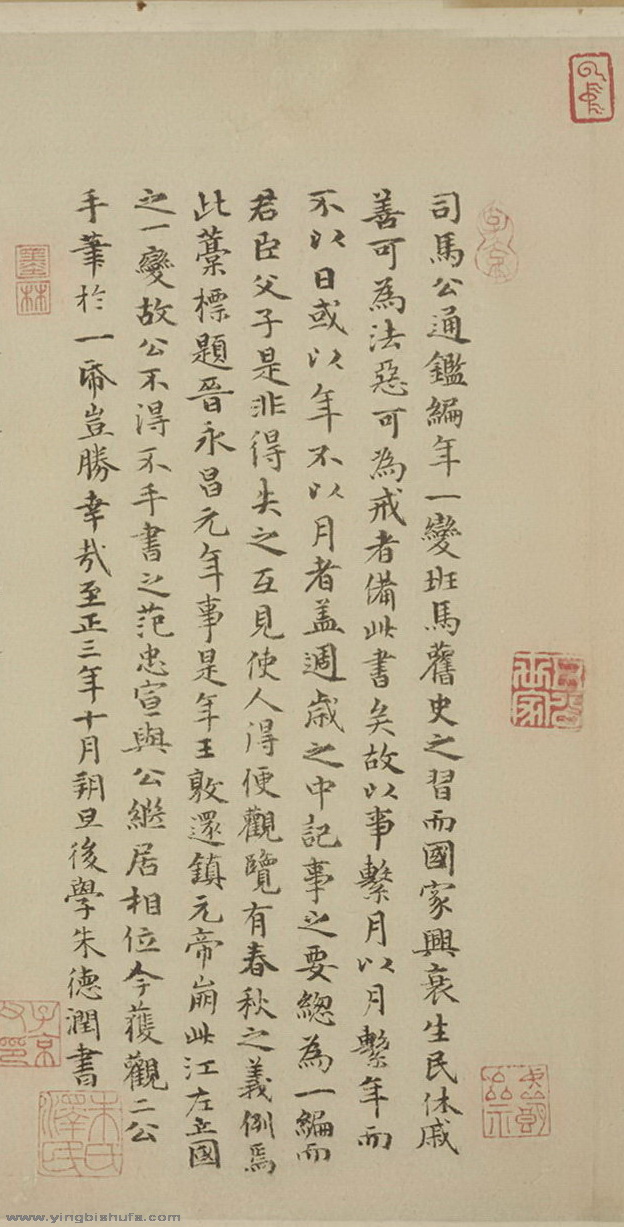 司馬公通鑑編年一變班馬舊史之習而國家興衰生民休戚
善可為法惡可為戒者備此書矣故以事繫月以月繫年而
不以日或以年不以月者盖週歲之中記事之要總為一編而
君臣父子是非得失之互見使人得便觀覽有春秋之義例焉
此藁標題晉永昌元年事是年王敦還鎮元帝崩此江左立國
之一變故公不得不手書之范忠宣與公繼居相位今獲觀二公
手筆於一帋豈勝幸哉至正三年十月朔旦後學朱德潤書
子京
墨林
朱氏澤民
www.yingbishufa.com